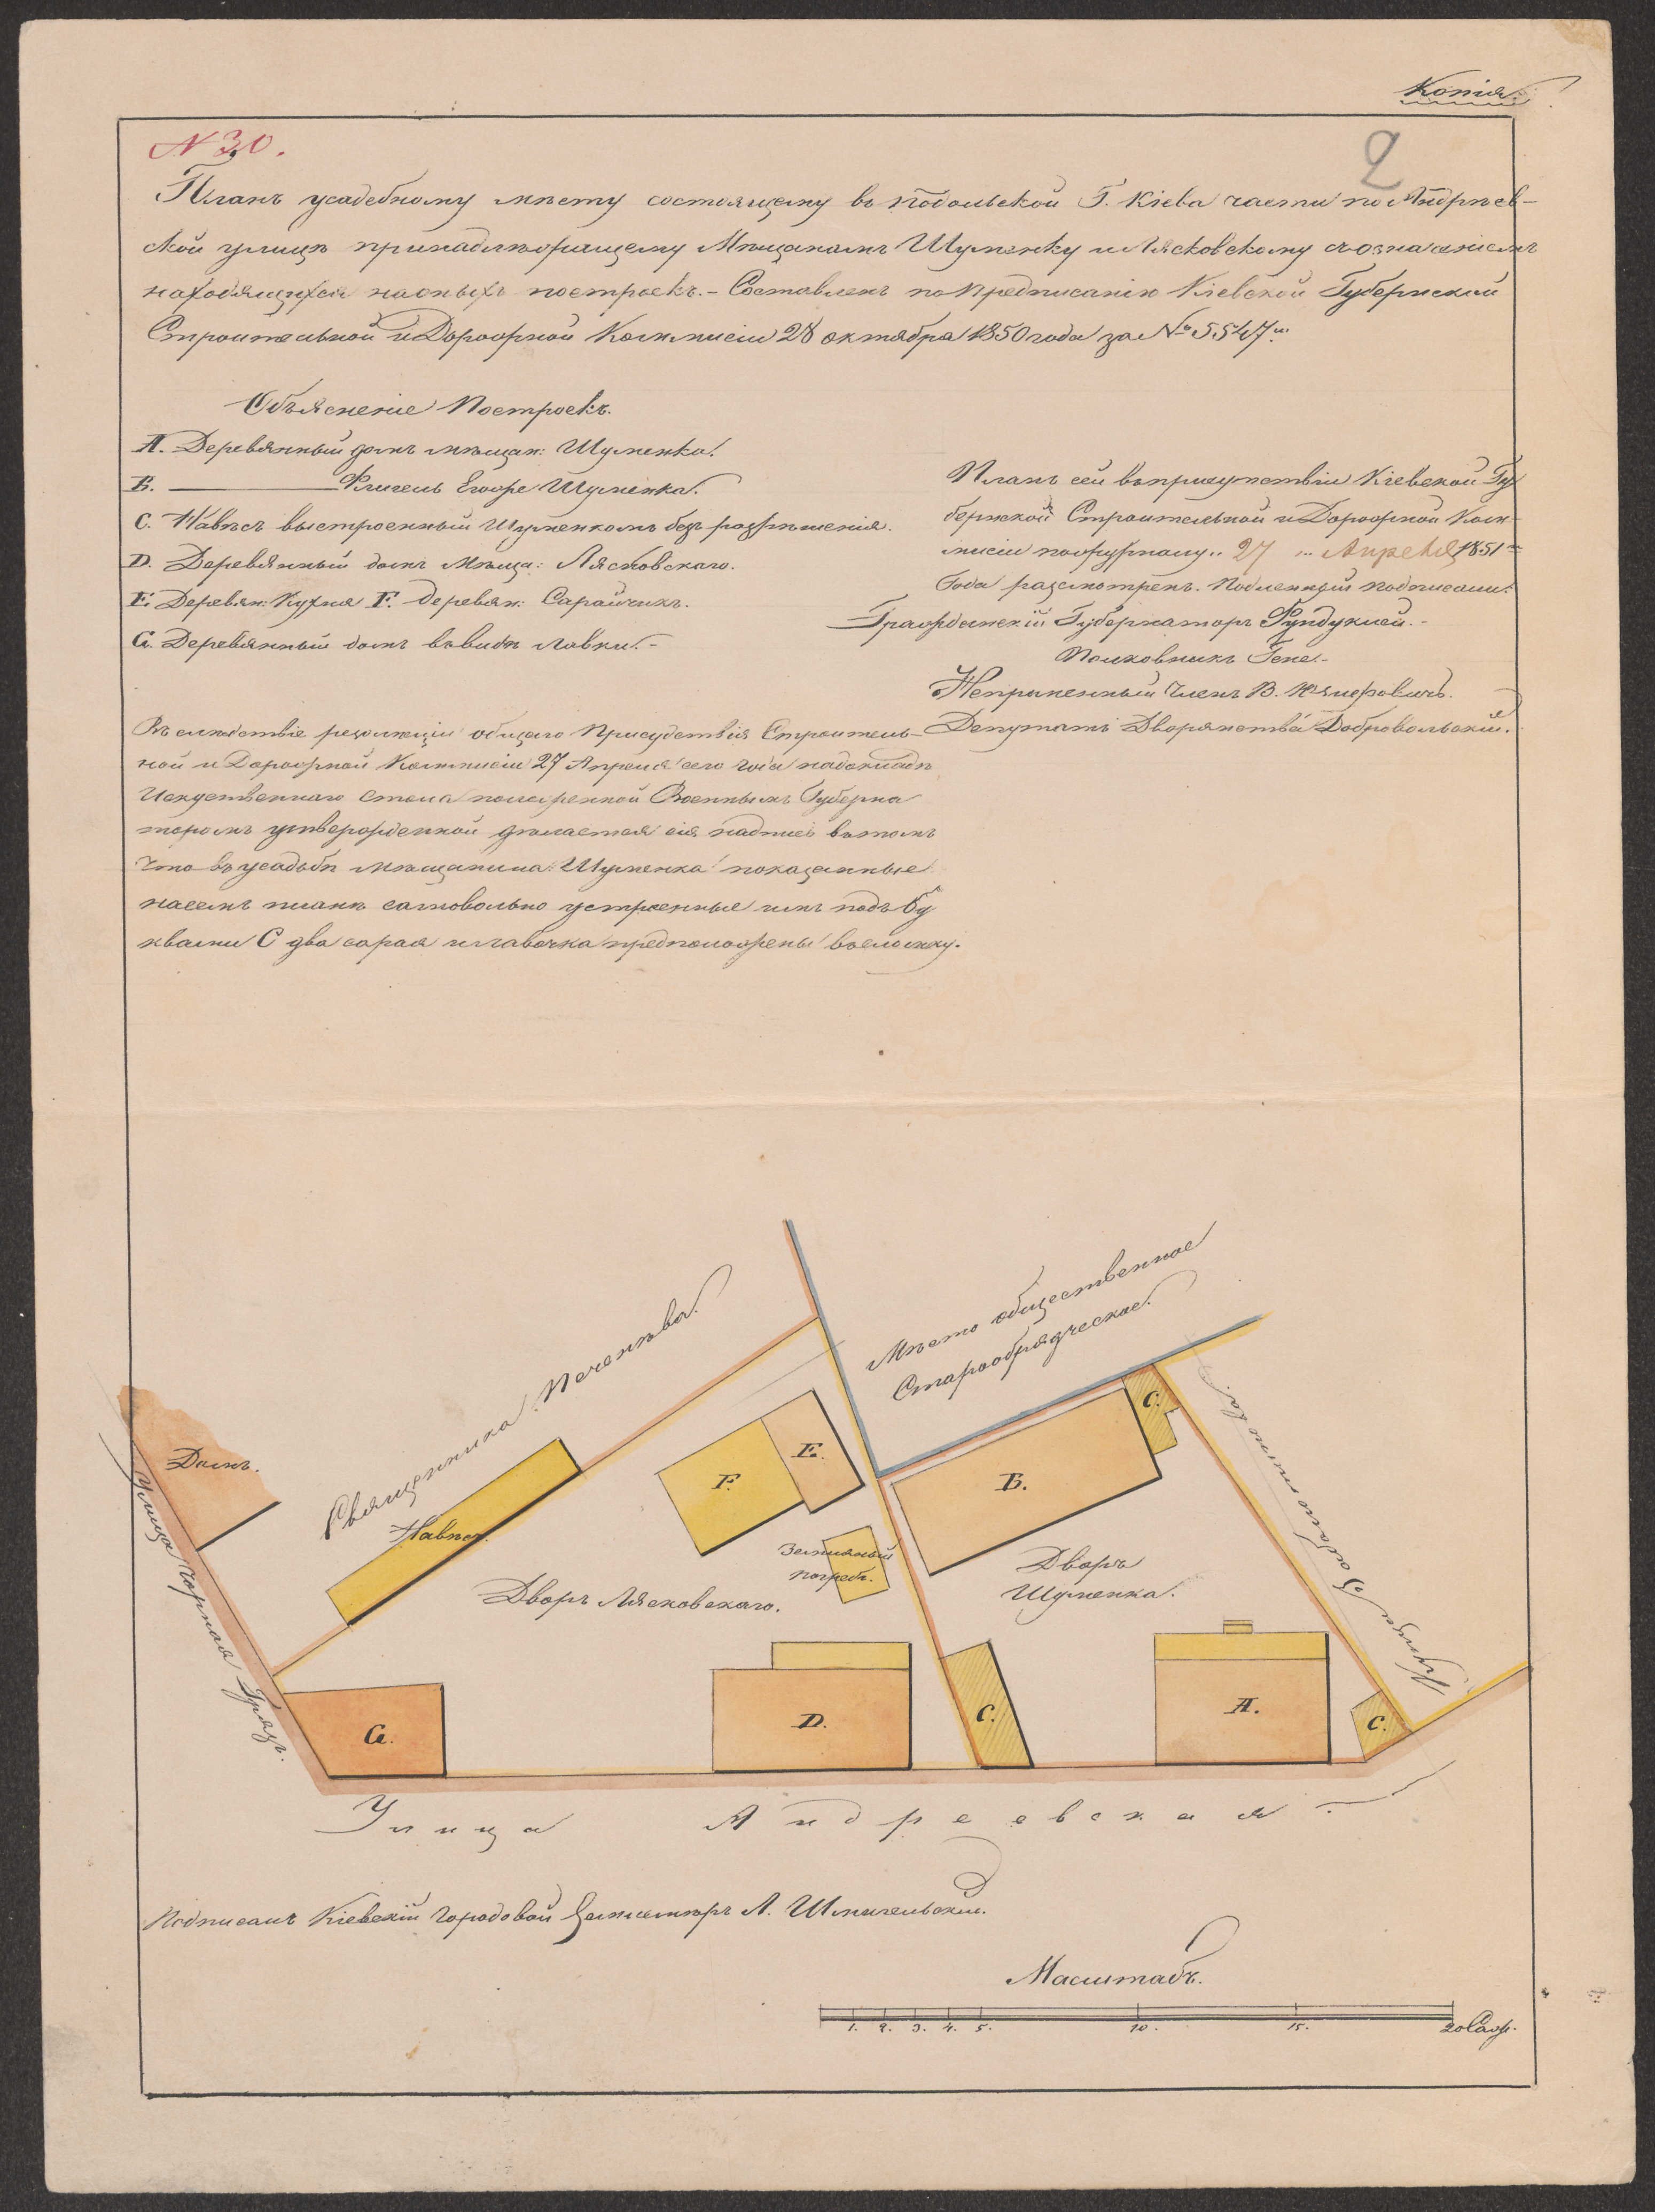 Копія.
N 30.
2
Планъ усадебному мѣсту состоящему въ Подольской Г. Кіева части по Андрѣев-
ской улицѣ принадлежащему Мѣщанамъ Шуменку и Лясковскому съ означеніемъ
находящихся на оныхъ построекъ. – Составленъ по предписанію Кіевской Губернской
Строительной и Дорожной Коммисіи 28 октября 1850 года за № 5547м.
Объясненіе Построекъ.
A. Деревянный домъ мѣщан: Шуменка.
B. ——— Флигель Егоже Шуменка.
C. Навѣсъ выстроенный Шуменкомъ безъ разрѣшенія.
D. Деревянный домъ Мѣща: Лясковскаго.
E. Деревян: Кухня F. деревян: Сарайчикъ.
G. Деревянный домъ въ видѣ лавки. –
Планъ сей въ присутствіи Кіевской Гу
бернской Строительной и Дорожной Ком-
мисіи по журналу 27 Апреля 1851
Года разсмотренъ. Подленный подписали:
Гражданскій Губернаторъ Фундуклей. –
Полковникъ Гене. –
Непременный Членъ В.
Депутатъ Дворянства Добровольскій.
Въ слѣдствіе резолюціи общаго Присудствія Строитель-
ной и Дорожной Коммисіи 27 Апреля сего года на докладѣ
Искуственнаго стола положенной Военнымъ Губерна
торомъ утвержденной дѣлается сія надпись въ томъ
что въ усадьбѣ мѣщанина Шуменка показанные
на семъ планѣ самовольно устроенные имъ подъ бу
квами С два сарая и лавочка предположены въ сломку.
Священника Печенѣва.
Мѣсто общественное
Старообрядческое.
Купца
Домъ.
Улица Чорная Грязь.
Навѣсъ.
F.
E.
B.
C.
Земляной
погребъ.
Дворъ Лясковскаго.
Дворъ
Шуменка.
G.
D.
C.
A.
C.
Улица Андреевская.
Подписалъ Кіевскій Городовой Землемѣръ А. Шмигельскій.
Масштабъ.
1. 2. 3. 4. 5. 10. 15. 20 Саж.